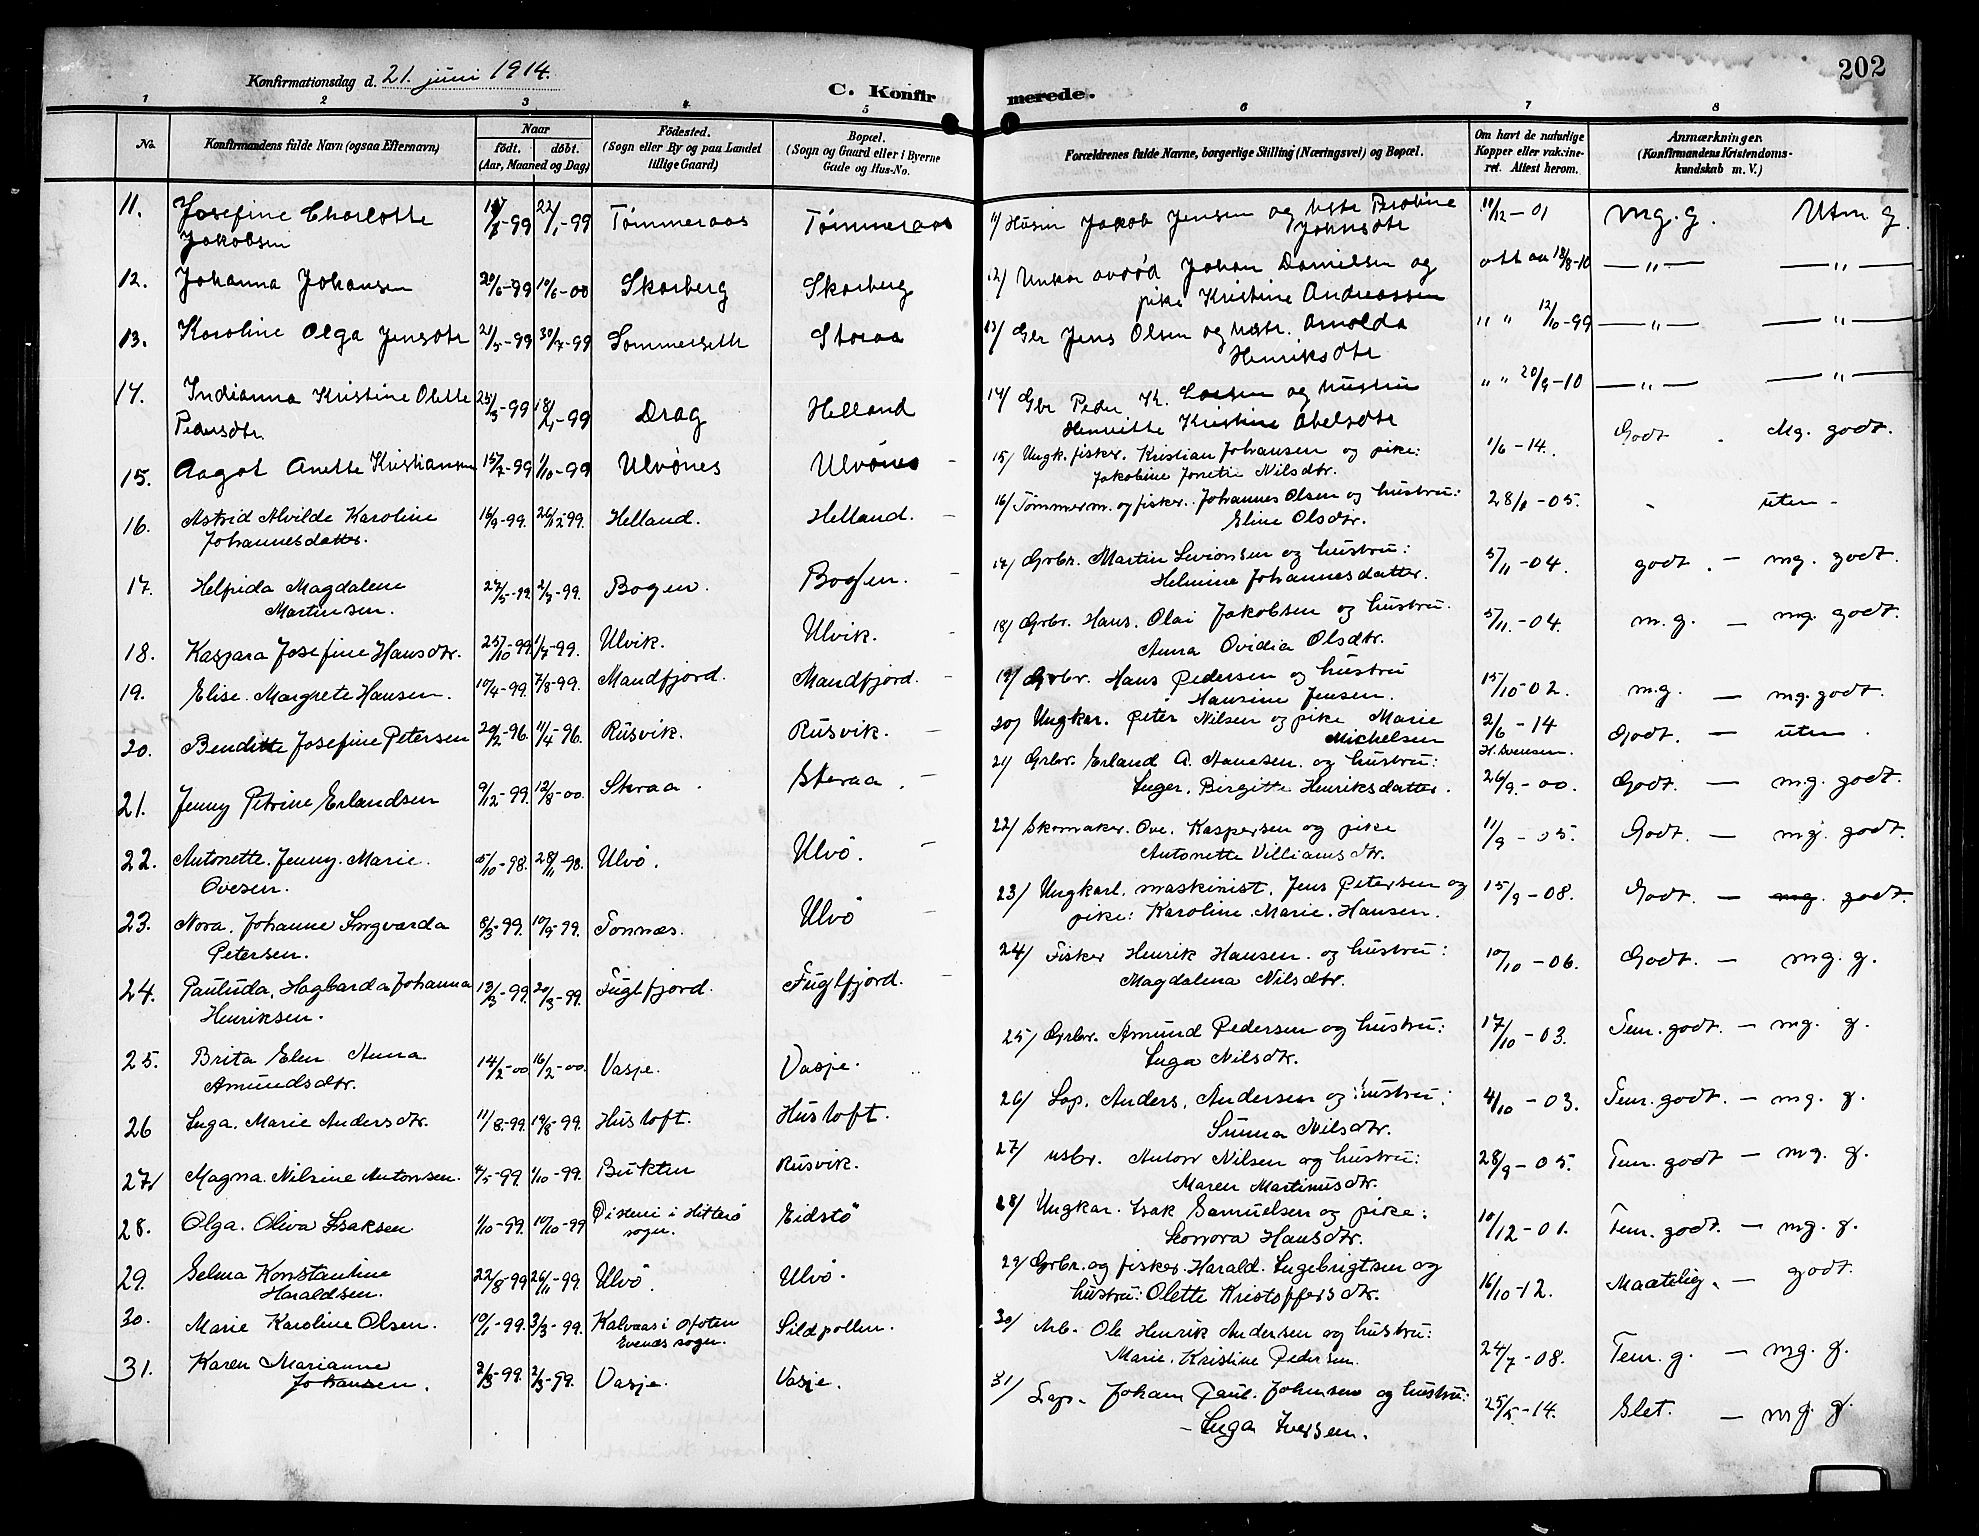 202
Konfirmationsdag d. 21. juni 1914.
C. Konfirmerede.
1 2 3 4 5 6 7 8
No.
Konfirmandens fulde Navn (ogsaa Efternavn)
Naar
født. døbt.
(Aar, Maaned og Dag)
Fødested.
(Sogn eller By og paa Landet
tillige Gaard)
Bopæl.
(Sogn og Gaard eller i Byerne
Gade og Hus-No.
Forældrenes fulde Navne, borgerlige Stilling (Næringsvei) og Bopæl.
Om havt de naturlige
Kopper eller vakcine-
ret. Attest herom.
Anmærkninger.
(Konfirmandens Kristendoms-
kundskab m. V.)
11. Josefine Charlotte 22/1-99 Tømmeraas Tømmeraas 11/ Jakob Jensen og 11/12-01 mg. g. Utm g.
Jakobsen Johnsdtr
12. Johanna Johansen 20/6-99 10/6-00 Skarberg Skarberg 12/ Unkar Johan Danielsen og 18/8-10 —"— —"—
pike Kristine Andreassen
13. Karoline Olga Jensdtr 21/5-99 30/7-99 Sommerseth Storaa 13/ Gbr Jens Olsen og hstr. Arnolda " " 12/10-99 —"— —"—
Henriksdtr
14. Indianna Kristine Olette 25/3-99 18/1-99 Drag Helland 14/ Gbr Peder K. og hustru " " 20/9-10 —"— —"—
Pedersdtr. Henriette Kristine Abelsdtr
15. Aagot Anette Kristiansen 15/7-99 1/10-99 Ulvönes Ulvönes 15/ Ungk. fisker. Kristian Johansen og pike: 1/6-14. Godt Mg. godt.
Jakobine Nilsdtr.
16. Astrid Alvilde Karoline 16/9-99. 26/12-99. Helland. Helland. 16/ Tømmerm. og fisker. Johannes Olsen og hustru: -05. - uten -
Johannesdatter. Eline Olsdtr.
17. Helfrida Magdalene 27/5-99 2/7-99. Bogen. Bogen. 17/ Grbr. Martin Sevionsen og hustru: 5/11-04. godt. — mg. godt.
Martinsen. Helmine Johannesdatter.
18. Kaspara Josefine Hansdtr. 25/10-99 1/7-99. Ulvik. Ulvik. 18/ Grbr. Hans. Olai Jakobsen og hustru. 5/11-04. m. g. — mg. godt.
Anna Ovidia Olsdtr.
19. Elise. Margrete Hansen. 10/4-99. 7/8-99. Mandfjord. Mandfjord. 19/ Grbr. Hans Pedersen og hustru 15/10-02. m.g. — mg. godt.
Hansine Jensen.
20. Benditte Josefine Petersen 20/2-96. 11/4-96. Rusvik. Rusvik. 20/ Ungkar. Peter Nilsen og pike Marie 2/6-14 Godt. — uten.
Michelsen H. Svensen.
21. Jenny Petrine Erlandsen 9/12-99. 12/8-00. Storaa. Storaa. 21/ Grbr. Erland A. Hansen. og hustru: 26/9-00. Godt. — mg. godt.
Inger. Birgitte Henriksdatter.
22. Antonette. Jenny. Marie. 5/10-98. 28/11-98. Ulvö. Ulvö. 22/ Skomaker. Ove. Kaspersen og pike 11/9-05. Godt. — mg. godt.
Ovesen. Antonette Villiamsdtr.
23. Nora. Johanne Ingvarda 8/3-99. 10/9-99. Tonnæs. Ulvö 23/ Ungkarl. maskinist. Jens Petersen og 15/9-08. Godt. — mg. godt.
Petersen. pike: Karoline. Marie. Hansen.
24. Pauluda, Hagbarda Johanna 13/3-99. 20/3-99. Fuglfjord. Fuglfjord. 24/ Fisker Henrik Hansen. og hustru: 10/10-06. Godt. — mg. g.
Henriksen. Magdalena Nilsdtr.
25. Brita Elen Anna 14/2-00 16/2-00. Vasje. Vasje. 25/ Grbr. Amund Pedersen og hustru: 17/10-03. Tem. godt. — mg. g.
Amundsdtr. Inga Nilsdtr.
26 Inga. Marie Andersdtr. 11/8-99. 19/8-99. Husloft. Husloft. 26/ Lap. Anders. Andersen og hustru: 4/10-03. Tem. godt. — mg. g.
Sunna Nilsdtr.
27 Magna. Nilsine Antonsen. 4/5-99. 1/10-99. Bukten Rusvik. 27/ usbr. Anton Nilsen og hustru: 28/9-05. Tem. godt — mg. g.
Maren Martinusdtr.
28. Olga. Oliva Isaksen 1/10-99. 10/10-99 i Hitterö Eidstö 28/ Ungkar. Isak Samuelsen og pike: 10/12-01. Tem. godt. — mg. g.
sogn. Leonora Hansdtr.
29. Selma Konstantine 22/8-99 26/11-99. Ulvö. Ulvö. 29/ Grbr. og fisker. Harald. Ingebrigtsen og 16/10-12. Maatelig. — godt.
Haraldsen. hustru: Olette Kristoffersdtr.
30. Marie Karoline Olsen. 10/1-99. 3/3-99. Kalvaas i Ofoten Sildpollen. 30/ Arb. Ole Henrik Andersen og hustru: 24/7-08. Tem. g. — mg. g.
Evenæs sogn. Marie. Kristine Pedersen.
31. Karen Marianne 2/3-99. 2/3-99. Vasje. Vasje. 31/ Lap. Johan Paul. Johnsen og hustru: 25/5-14. Slet. — mg. g.
Johansen. - Inga Iversen.